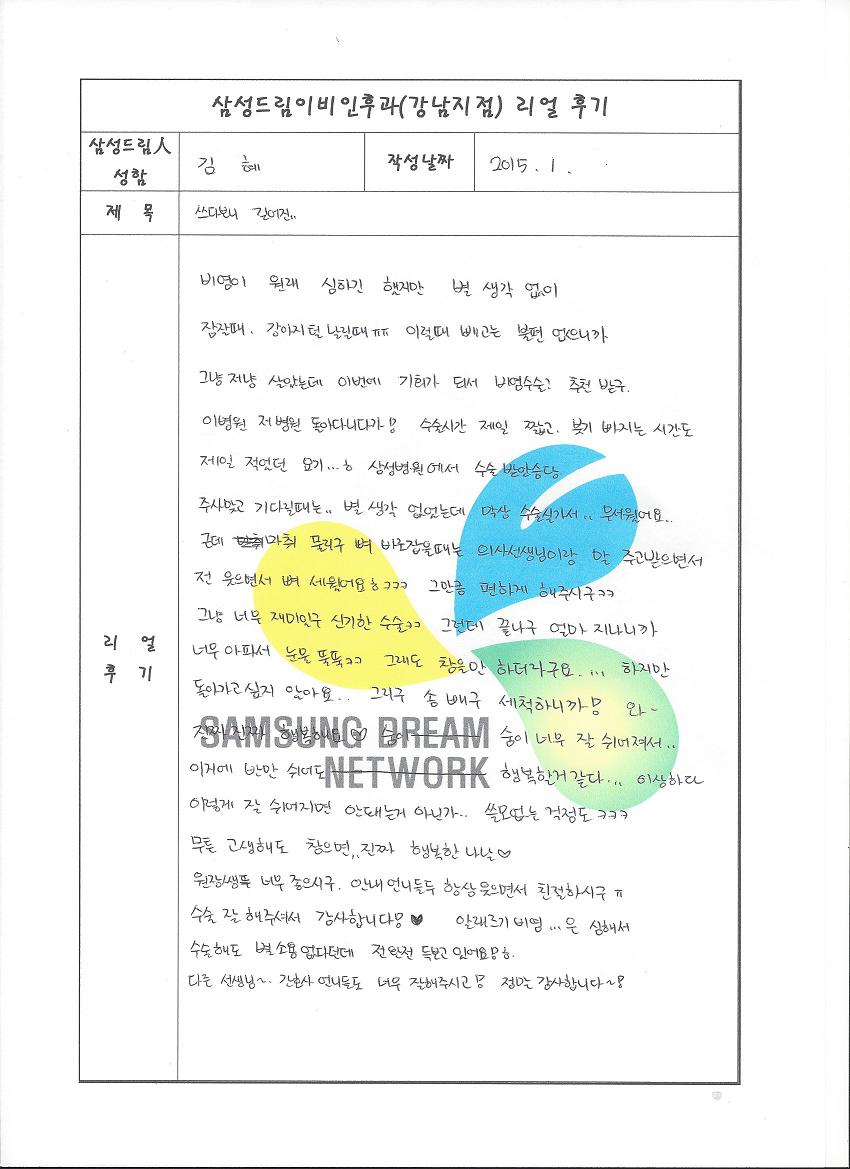 삼성드림이비인후과(강남지점) 리얼 후기
삼성드림人 성함
김 혜
작성날짜
2015. 1.
제 목
쓰다보니 길어진..
리얼 후기
비염이 원래 심하긴 했지만 별 생각 없이
잠잘때. 강아지털 날릴때ㅠㅠ 이럴때 빼고는 불편 없으니까
그냥저냥 살았는데 이번에 기회가 되서 비염수술? 추천 받구.
이병원 저병원 돌아다니다가! 수술시간 제일 짧고. 붓기 빠지는 시간도
제일 적었던 요기...ㅎ 삼성병원에서 수술받았습당
주사맞고 기다릴때는.. 별 생각 없었는데 막상 수술실가서.. 무서웠어요..
근데 마취 풀리구 뼈 바로잡을때는 의사선생님이랑 말 주고받으면서
전 웃으면서 뼈 세웠어요ㅎㅋㅋㅋ 그만큼 편하게 해주시구ㅋㅋ
그냥 너무 재미있구 신기한 수술ㅋㅋ 그런데 끝나구 얼마 지나니까
너무 아파서 눈물 뚝뚝ㅋㅋ 그래도 참을만 하더라구요.... 하지만
돌아가고싶지 않아요.. 그리구 솜 빼구 세척하니까! 와~
진짜진짜 행복해요♡ 숨이 숨이 너무 잘 쉬어져서..
이거에 반만 쉬어도 행복할거같다... 이상하다
이렇게 잘 쉬어지면 안돼는거 아닌가.. 쓸모없는 걱정도ㅋㅋㅋ
무튼 고생해도 참으면.. 진짜 행복한 나날♡
원장쌤뚜 너무 좋으시구. 안내언니들두 항상웃으면서 친절하시구ㅠ
수술 잘 해주셔서 감사합니다!♥ 알레르기비염...은 심해서
수술해도 별소용없다던데 전완전 득보고 있어요!ㅎ.
다른 선생님~. 간호사 언니들도 너무 잘해주시고! 정말 감사합니다~!
SAMSUNG DREAM
NETWORK